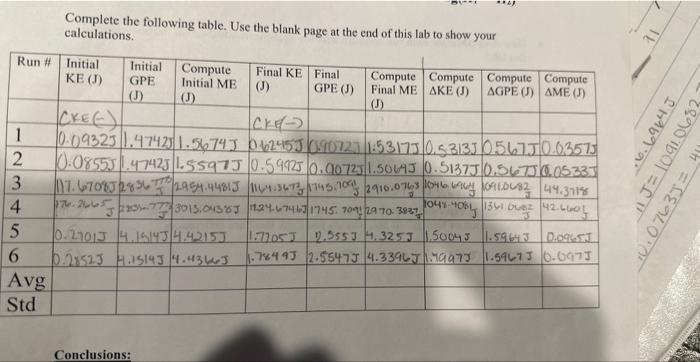 Complete the following table. Use the blank page at the end of this lab to show your
calculations.
Run # Initial KE (J) Initial GPE (J) Compute Initial ME (J) Final KE (J) Final GPE (J) Compute Final ME (J) Compute ΔKE (J) Compute ΔGPE (J) Compute ΔME (J)
1 0.0932J 1.4742J 1.5674J 0.6245J 0.9072J 1.5317J 0.5313J 0.567J 0.0357J
2 0.0855J 1.4742J 1.5597J 0.5992J 0.9072J 1.5064J 0.5137J 0.567J 0.0533J
3 117.6708J 2954.4481J 1164.3673J 1745.709J 2910.0763J 1046.6964J 1091.0682J 44.3718
4 3013.0438J 1224.6746J 1745.709J 2970.3837J
5 0.2701J 4.1514J 4.4215J 1.7705J 2.555J 4.325J 1.5004J 1.5964J 0.0965J
6 0.2852J 4.1514J 4.4366J 1.7849J 2.5547J 4.3396J 1.4997J 1.5967J 0.097J
Avg
Std
Conclusions: